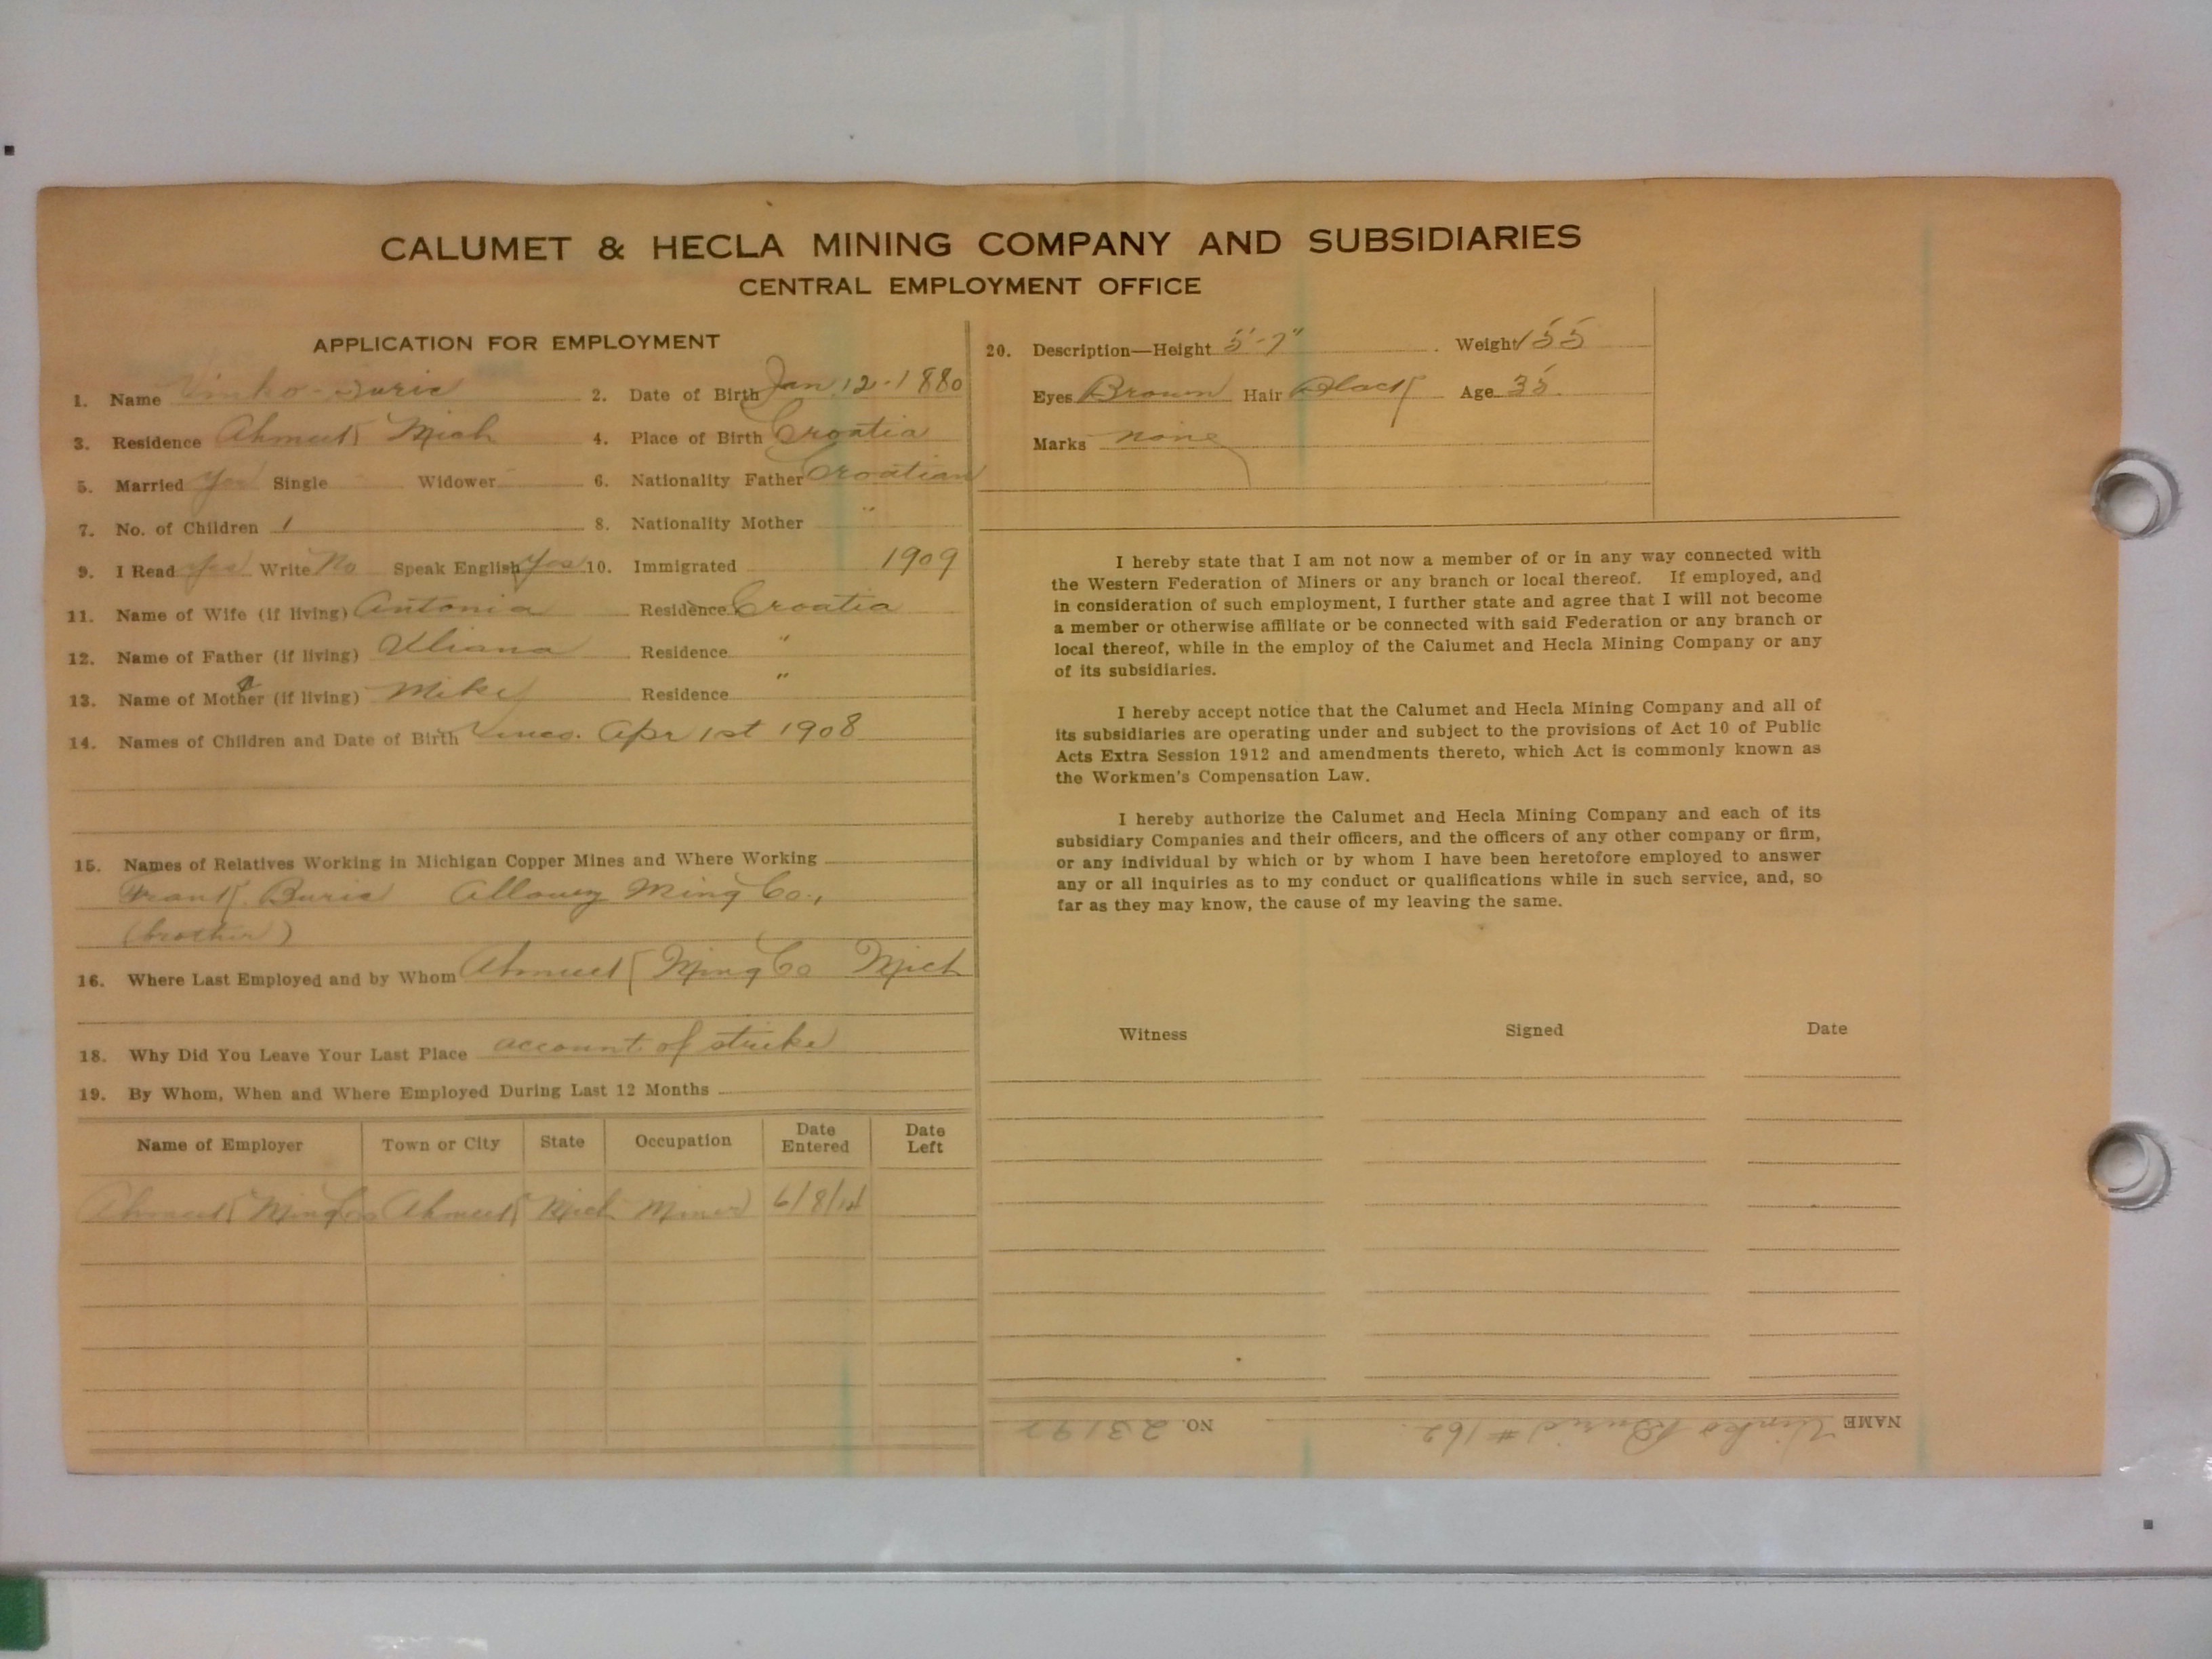 CALUMET & HECLA MINING COMPANY AND SUBSIDIARIES
CENTRAL EMPLOYMENT OFFICE
APPLICATION FOR EMPLOYMENT
1. Name Vinko Buric 2. Date of Birth Jan 12-1880
3. Residence Ahmeek Mich 4. Place of Birth Croatia
5. Married Yes Single Widower 6. Nationality Father Croatian
7. No. of Children 1 8. Nationality Mother "
9. I Read Yes Write No Speak English Yes 10. Immigrated 1909
11. Name of Wife (if living) Antonia Residence Croatia
12. Name of Father (if living) Residence "
13. Name of Mother (if living) Mike Residence "
14. Names of Children and Date of Birth Apr 1st 1908
15. Names of Relatives Working in Michigan Copper Mines and Where Working
Frank Buric Allouez Ming Co.,
(brother)
16. Where Last Employed and by Whom Ahmeek Ming Co Mich
18. Why Did You Leave Your Last Place account of strike
19. By Whom, When and Where Employed During Last 12 Months
Name of Employer Town or City State Occupation Date Entered Date Left
Ahmeek Ming Co Ahmeek Mich Miner 6/8/14
20. Description—Height 5'-7" Weight 155
Eyes Brown Hair Black Age 35
Marks none
I hereby state that I am not now a member of or in any way connected with
the Western Federation of Miners or any branch or local thereof. If employed, and
in consideration of such employment, I further state and agree that I will not become
a member or otherwise affiliate or be connected with said Federation or any branch or
local thereof, while in the employ of the Calumet and Hecla Mining Company or any
of its subsidiaries.
I hereby accept notice that the Calumet and Hecla Mining Company and all of
its subsidiaries are operating under and subject to the provisions of Act 10 of Public
Acts Extra Session 1912 and amendments thereto, which Act is commonly known as
the Workmen's Compensation Law.
I hereby authorize the Calumet and Hecla Mining Company and each of its
subsidiary Companies and their officers, and the officers of any other company or firm,
or any individual by which or by whom I have been heretofore employed to answer
any or all inquiries as to my conduct or qualifications while in such service, and, so
far as they may know, the cause of my leaving the same.
Witness Signed Date
NAME Vinko Buric #162 NO. 23197